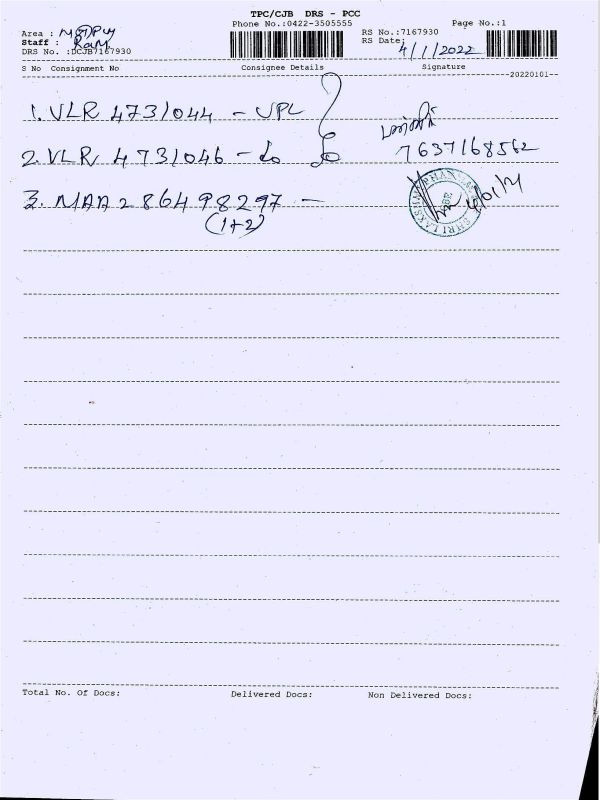 TPC/CJB DRS - PCC
Phone No.:0422-3505555
Page No.:1
Area :
Staff : Ram
DRS No. :DCJB7167930
RS No.:7167930
RS Date: 4/1/2022
S No Consignment No Consignee Details Signature
20220101--
1. VLR 4731044 - UPL
2. VLR 4731046 -
7637168562
3. MAA 286498297 -
(1+2)
Total No. Of Docs: Delivered Docs: Non Delivered Docs: